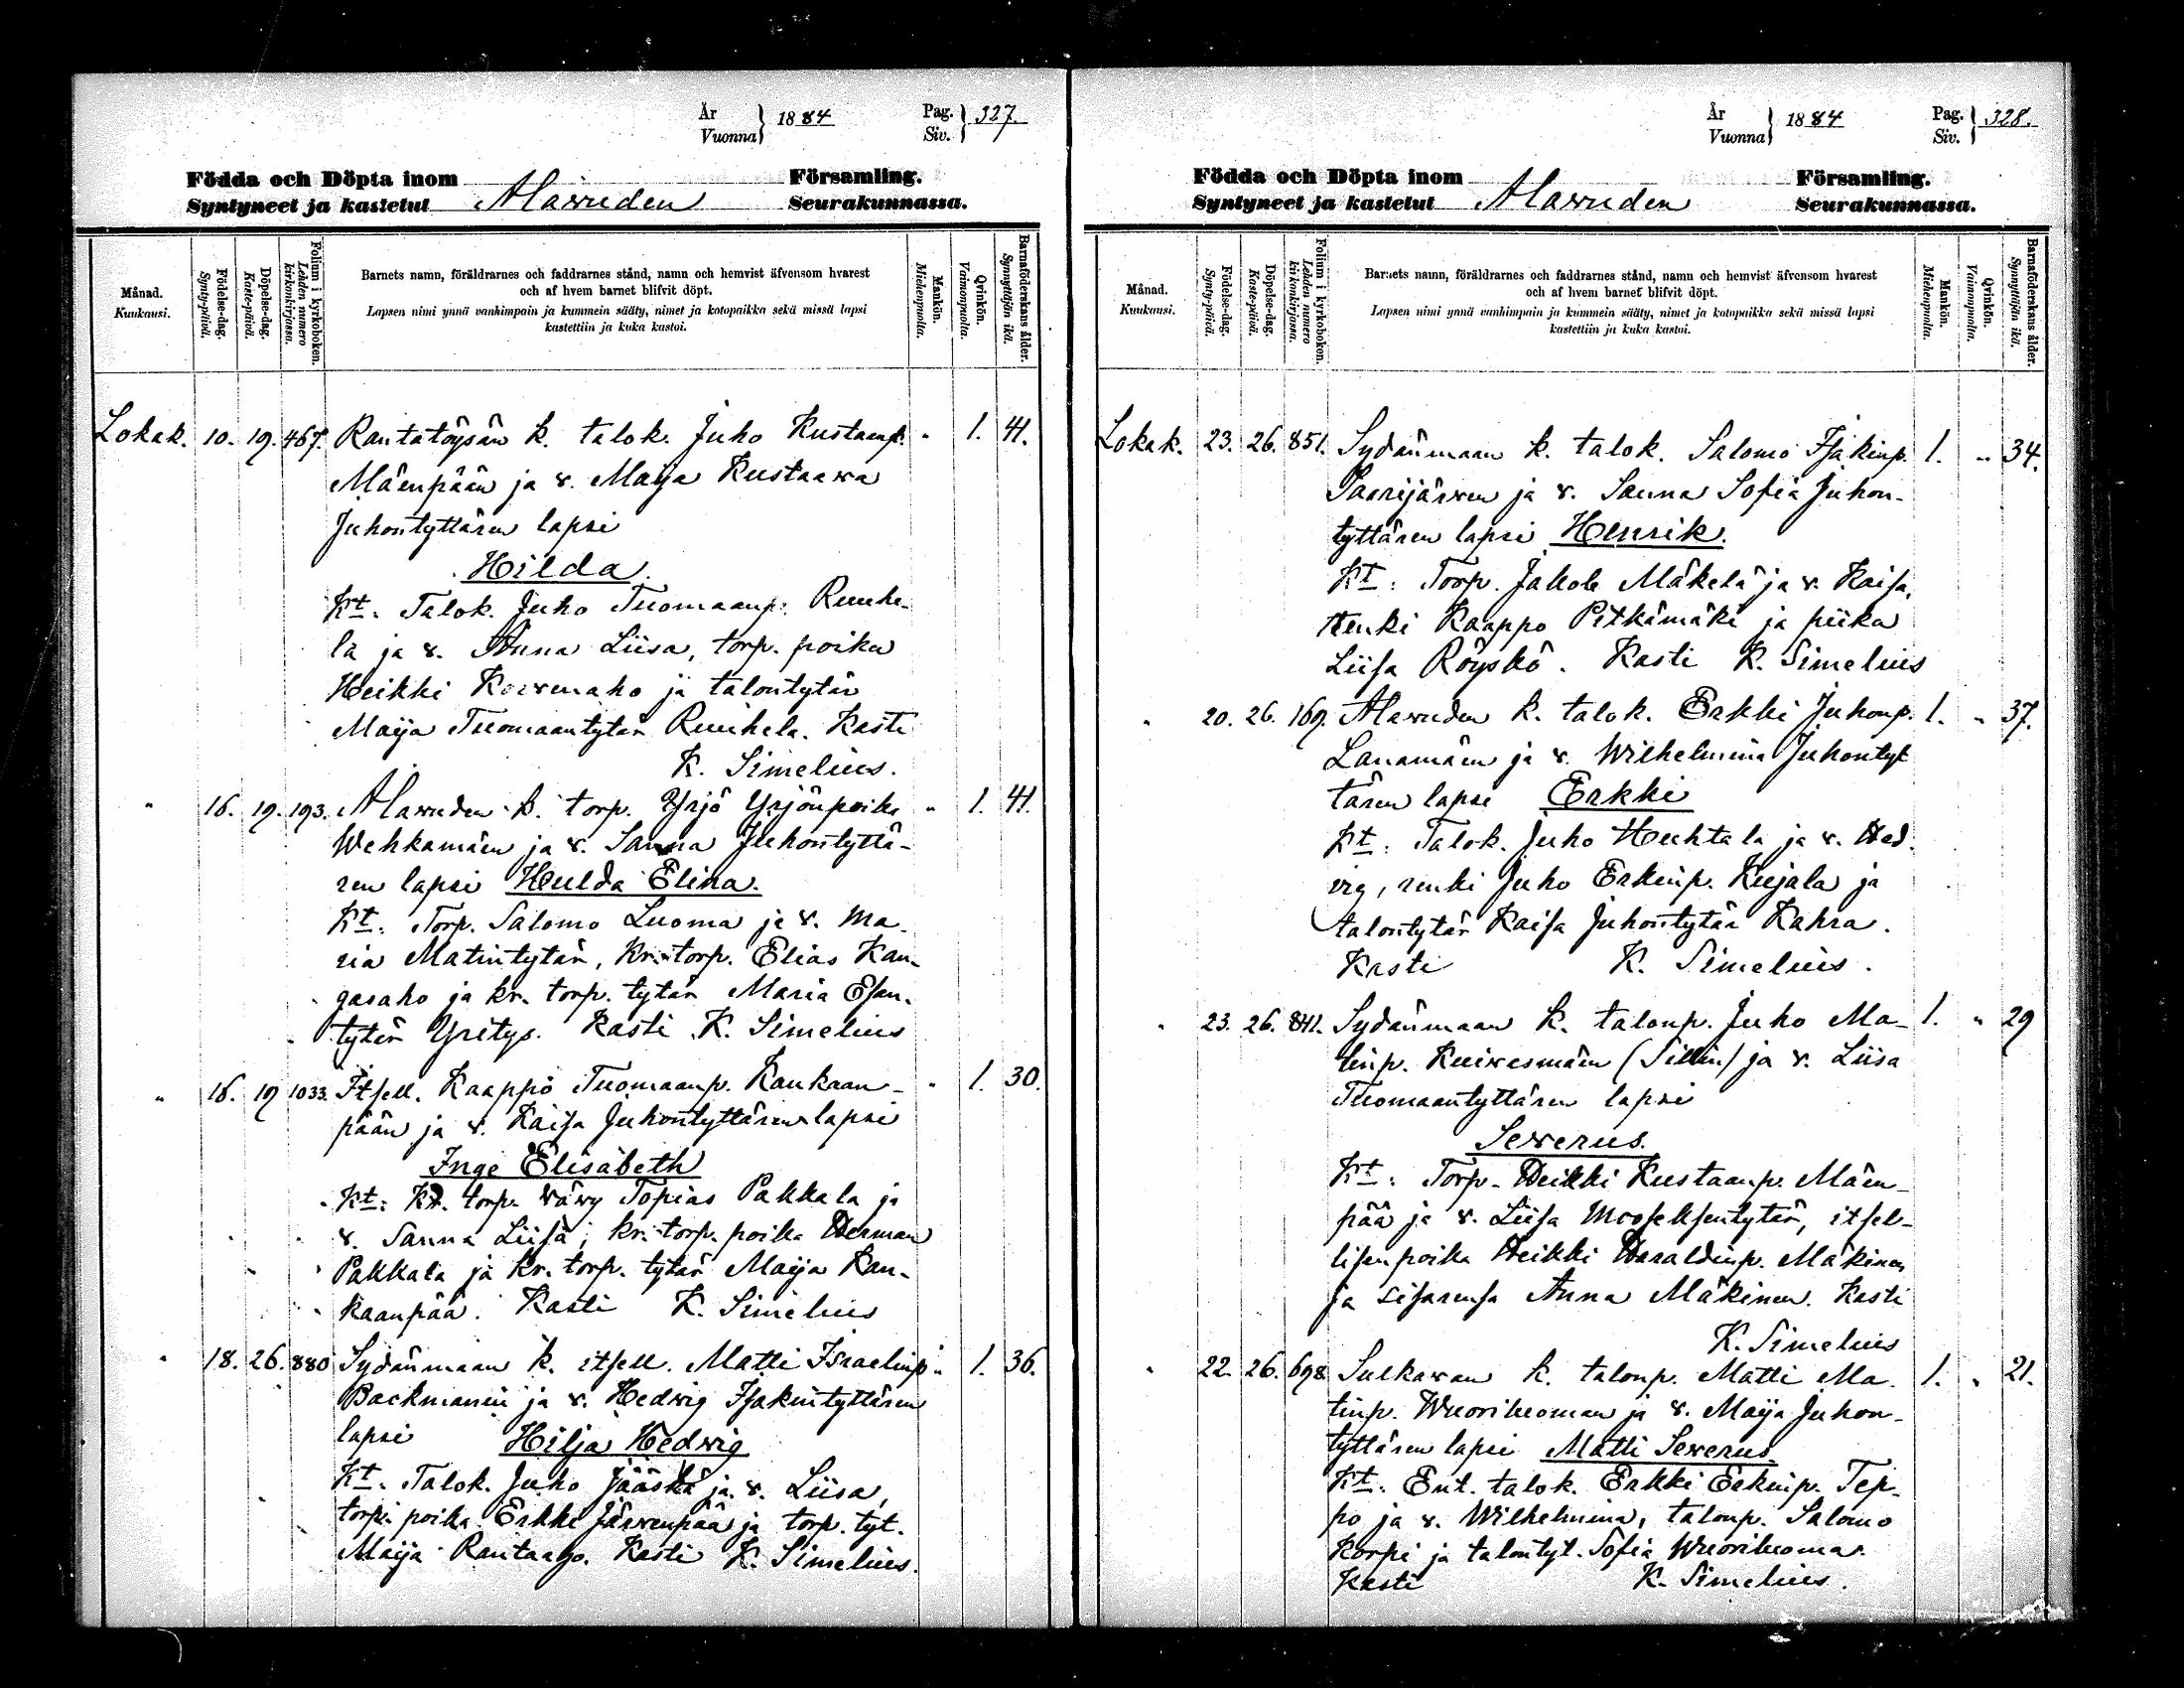 År
Vuonna
1884
Pag.
Siv.
327.
Födda och Döpta inom
Församling.
Syntyneet ja kastetut
Alavuden
Seurakunnassa.
Månad.
Kuukausi.
Födelse-dag.
Synty-päivä.
Döpelse-dag.
Kaste-päivä.
Folium i kyrkoboken.
Lehden numero
kirkonkirjassa.
Barnets namn, föräldrarnes och faddrarnes stånd, namn och hemvist äfvensom hvarest
och af hvem barnet blifvit döpt.
Lapsen nimi ynnä vanhimpain ja kummein sääty, nimet ja kotopaikka sekä missä lapsi
kastettiin ja kuka kastoi.
Mankön.
Miehenpuolta.
Qvinkön.
Vaimonpuolta.
Barnaföderskans ålder.
Synnyttäjän ikä.
Lokak. 10. 19. 467. Rantatöysän k. talok. Juho Kustaanp. " 1. 41.
Mäenpään ja v. Maija Kustaava
Juhontyttären lapsi
Hilda.
Kt. Talok. Juho Tuomaanp. Ruuhe-
la ja v. Anna Liisa, torp. poika
Heikki Korvenaho ja talontytär
Maija Tuomaantytär Ruuhela. Kasti
K. Simelius.
" 16. 19. 193. Alavuden k. torp. Yrjö Yrjönpoika " 1. 41.
Wehkamäen ja v. Sanna Juhontyttä-
ren lapsi Hulda Elina.
Kt. Torp. Salomo Luoma ja v. Ma-
ria Matintytär, kr. torp. Elias Kan-
gasaho ja kr. torp. tytär Maria Esan-
tytär Yritys. Kasti K. Simelius
" 16. 19 1033. Itsell. Kaappo Tuomaanp. Kankaan- " 1. 30.
pään ja v. Kaisa Juhontyttären lapsi
Inge Elisabeth
Kt: Kr. torp. vävy Topias Pakkala ja
v. Sanna Liisa, kr. torp. poika Herman
Pakkala ja kr. torp. tytär Maija Kan-
kaanpää. Kasti K. Simelius
" 18. 26. 880 Sydänmaan k. itsell. Matti Israelinp. " 1. 36.
Backmanin ja v. Hedvig Isakintyttären
lapsi Hilja Hedvig
Kt. Talok. Juho Jääskä ja v. Liisa,
torp. poika Erkki Järvenpää ja torp. tyt.
Maija Rantaajo. Kasti K. Simelius.
År
Vuonna
1884
Pag.
Siv.
328.
Födda och Döpta inom
Församling.
Syntyneet ja kastetut
Alavuden
Seurakunnassa.
Månad.
Kuukausi.
Födelse-dag.
Synty-päivä.
Döpelse-dag.
Kaste-päivä.
Folium i kyrkoboken.
Lehden numero
kirkonkirjassa.
Barnets namn, föräldrarnes och faddrarnes stånd, namn och hemvist äfvensom hvarest
och af hvem barnet blifvit döpt.
Lapsen nimi ynnä vanhimpain ja kummein sääty, nimet ja kotopaikka sekä missä lapsi
kastettiin ja kuka kastoi.
Mankön.
Miehenpuolta.
Qvinkön.
Vaimonpuolta.
Barnaföderskans ålder.
Synnyttäjän ikä.
Lokak. 23. 26. 851. Sydänmaan k. talok. Salomo Isakinp. 1. " 34.
Saarijärven ja v. Sanna Sofia Juhon-
tyttären lapsi Henrik.
Kt: Torp. Jakob Mäkelä ja v. Kaisa,
renki Kaappo Pitkämäki ja piika
Liisa Röyskö. Kasti K. Simelius
" 20. 26. 169. Alavuden k. talok. Erkki Juhonp. 1. " 37.
Lanamäen ja v. Wilhelmina Juhontyt
tären lapsi Erkki
Kt: Talok. Juho Huhtala ja v. Hed-
vig, renki Juho Erkinp. Kujala ja
talontytär Kaisa Juhontytär Kahra.
Kasti K. Simelius.
" 23. 26. 841. Sydänmaan k. talonp. Juho Ma- 1. " 29
tinp. Kuivasmäen (Sillin) ja v. Liisa
Tuomaantyttären lapsi
Severus.
Kt: Torp. Heikki Kustaanp. Mäen-
pää ja v. Liisa Mooseksentytär, itsel-
lisenpoika Heikki Haraldinp. Mäkinen
ja sisarensa Anna Mäkinen. Kasti
K. Simelius
" 22. 26. 698 Sulkavan k. talonp. Matti Ma- 1. " 21.
tinp. Wuoriluoman ja v. Maija Juhon-
tyttären lapsi Matti Severus.
Kt: Ent. talok. Erkki Erkinp. Tep-
po ja v. Wilhelmina, talonp. Salomo
Korpi ja talontyt. Sofia Wuoriluoma.
Kasti K. Simelius.